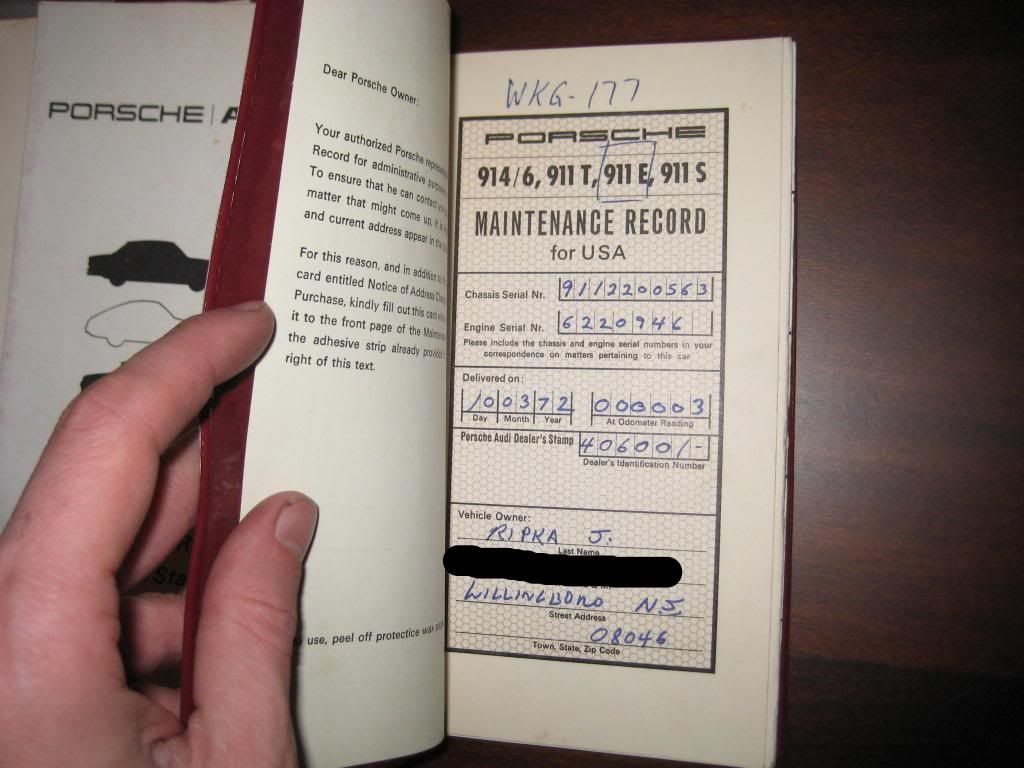 PORSCHE | A
Dear Porsche Owner:
Your authorized Porsche
Record for administrative
To ensure that he can contact
matter that might come up, it is
and current address appear in the
For this reason, and in addition to
card entitled Notice of Address
Purchase, kindly fill out this card
it to the front page of the
the adhesive strip already provided
right of this text.
to use, peel off protectice wax
WKG-177
PORSCHE
914/6, 911 T, 911 E, 911 S
MAINTENANCE RECORD
for USA
Chassis Serial Nr. 9112200563
Engine Serial Nr. 6220946
Please include the chassis and engine serial numbers in your
correspondence on matters pertaining to this car
Delivered on:
10 03 72 000003
Day Month Year At Odometer Reading
Porsche Audi Dealer's Stamp 406001/-
Dealer's Identification Number
Vehicle Owner:
RIPKA J.
Last Name
WILLINGBORO N.J.
Street Address
08046
Town, State, Zip Code